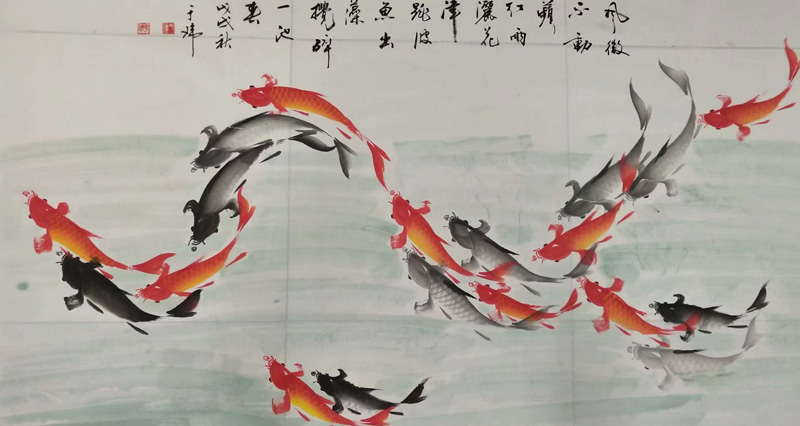 風微
不動
蘋
红雨
灑花
津
跳波
魚出
藻
攪碎
一池
春
戊戌秋
于瑋